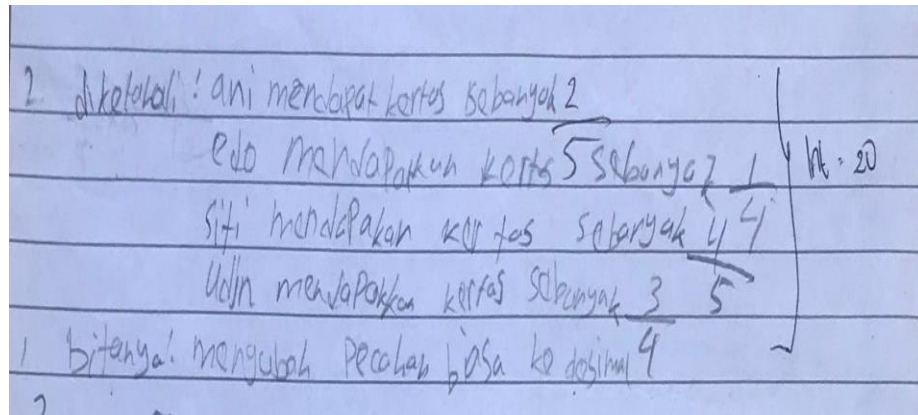 2. diketahui : ani mendapat kertas sebanyak 2/5
edo mendapatkan kertas sebanyak 1/4
siti mendapakan kertas sebanyak 4/5
Udin mendapakkan kertas sebanyak 3/4
kt = 20
1 Ditanya : mengubah pecahan biasa ke desimal
2